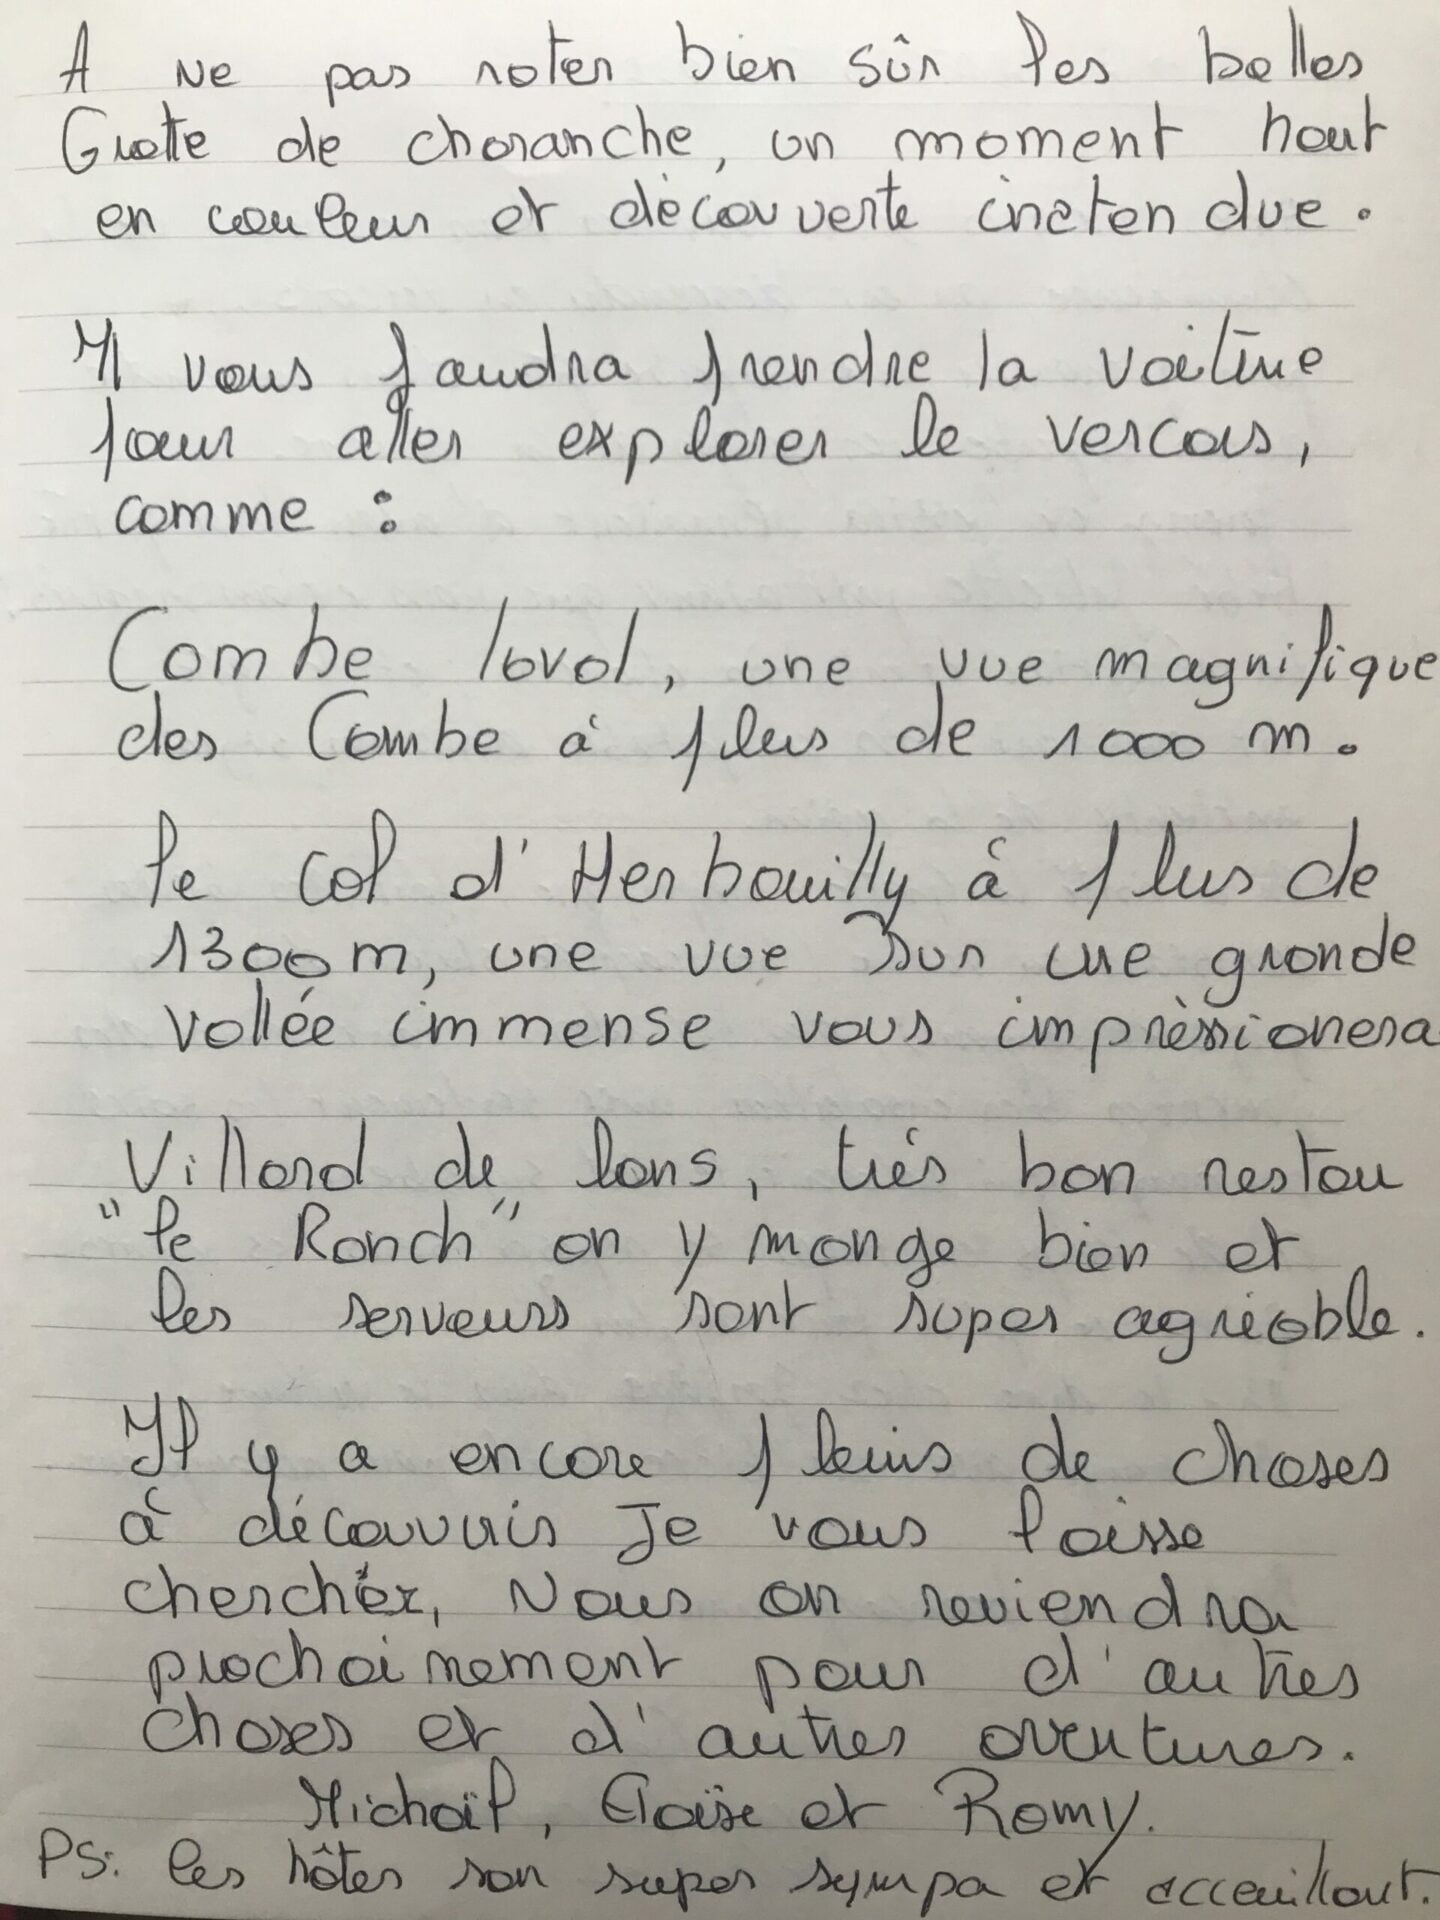 A Ne pas noter bien sûr les belles
Grotte de choranche, un moment haut
en couleur et découverte inatendue.
Il vous faudra prendre la voiture
pour aller explorer le vercors,
comme :
Combe laval, une vue magnifique
des Combe à plus de 1000 m.
le Col d'Herbouilly à plus de
1300m, une vue sur une grande
vallée immense vous imprèssionera
Villard de lans, trés bon restau
"le Ranch" on y mange bien et
les serveurs sont super agréable.
Il y a encore pleins de choses
à découvrir Je vous laisse
chercher, Nous on reviendra
prochainement pour d'autres
choses et d'autres aventures.
Michaël, Eloïse et Romy.
PS: les hôtes son super sympa et acceuillant.